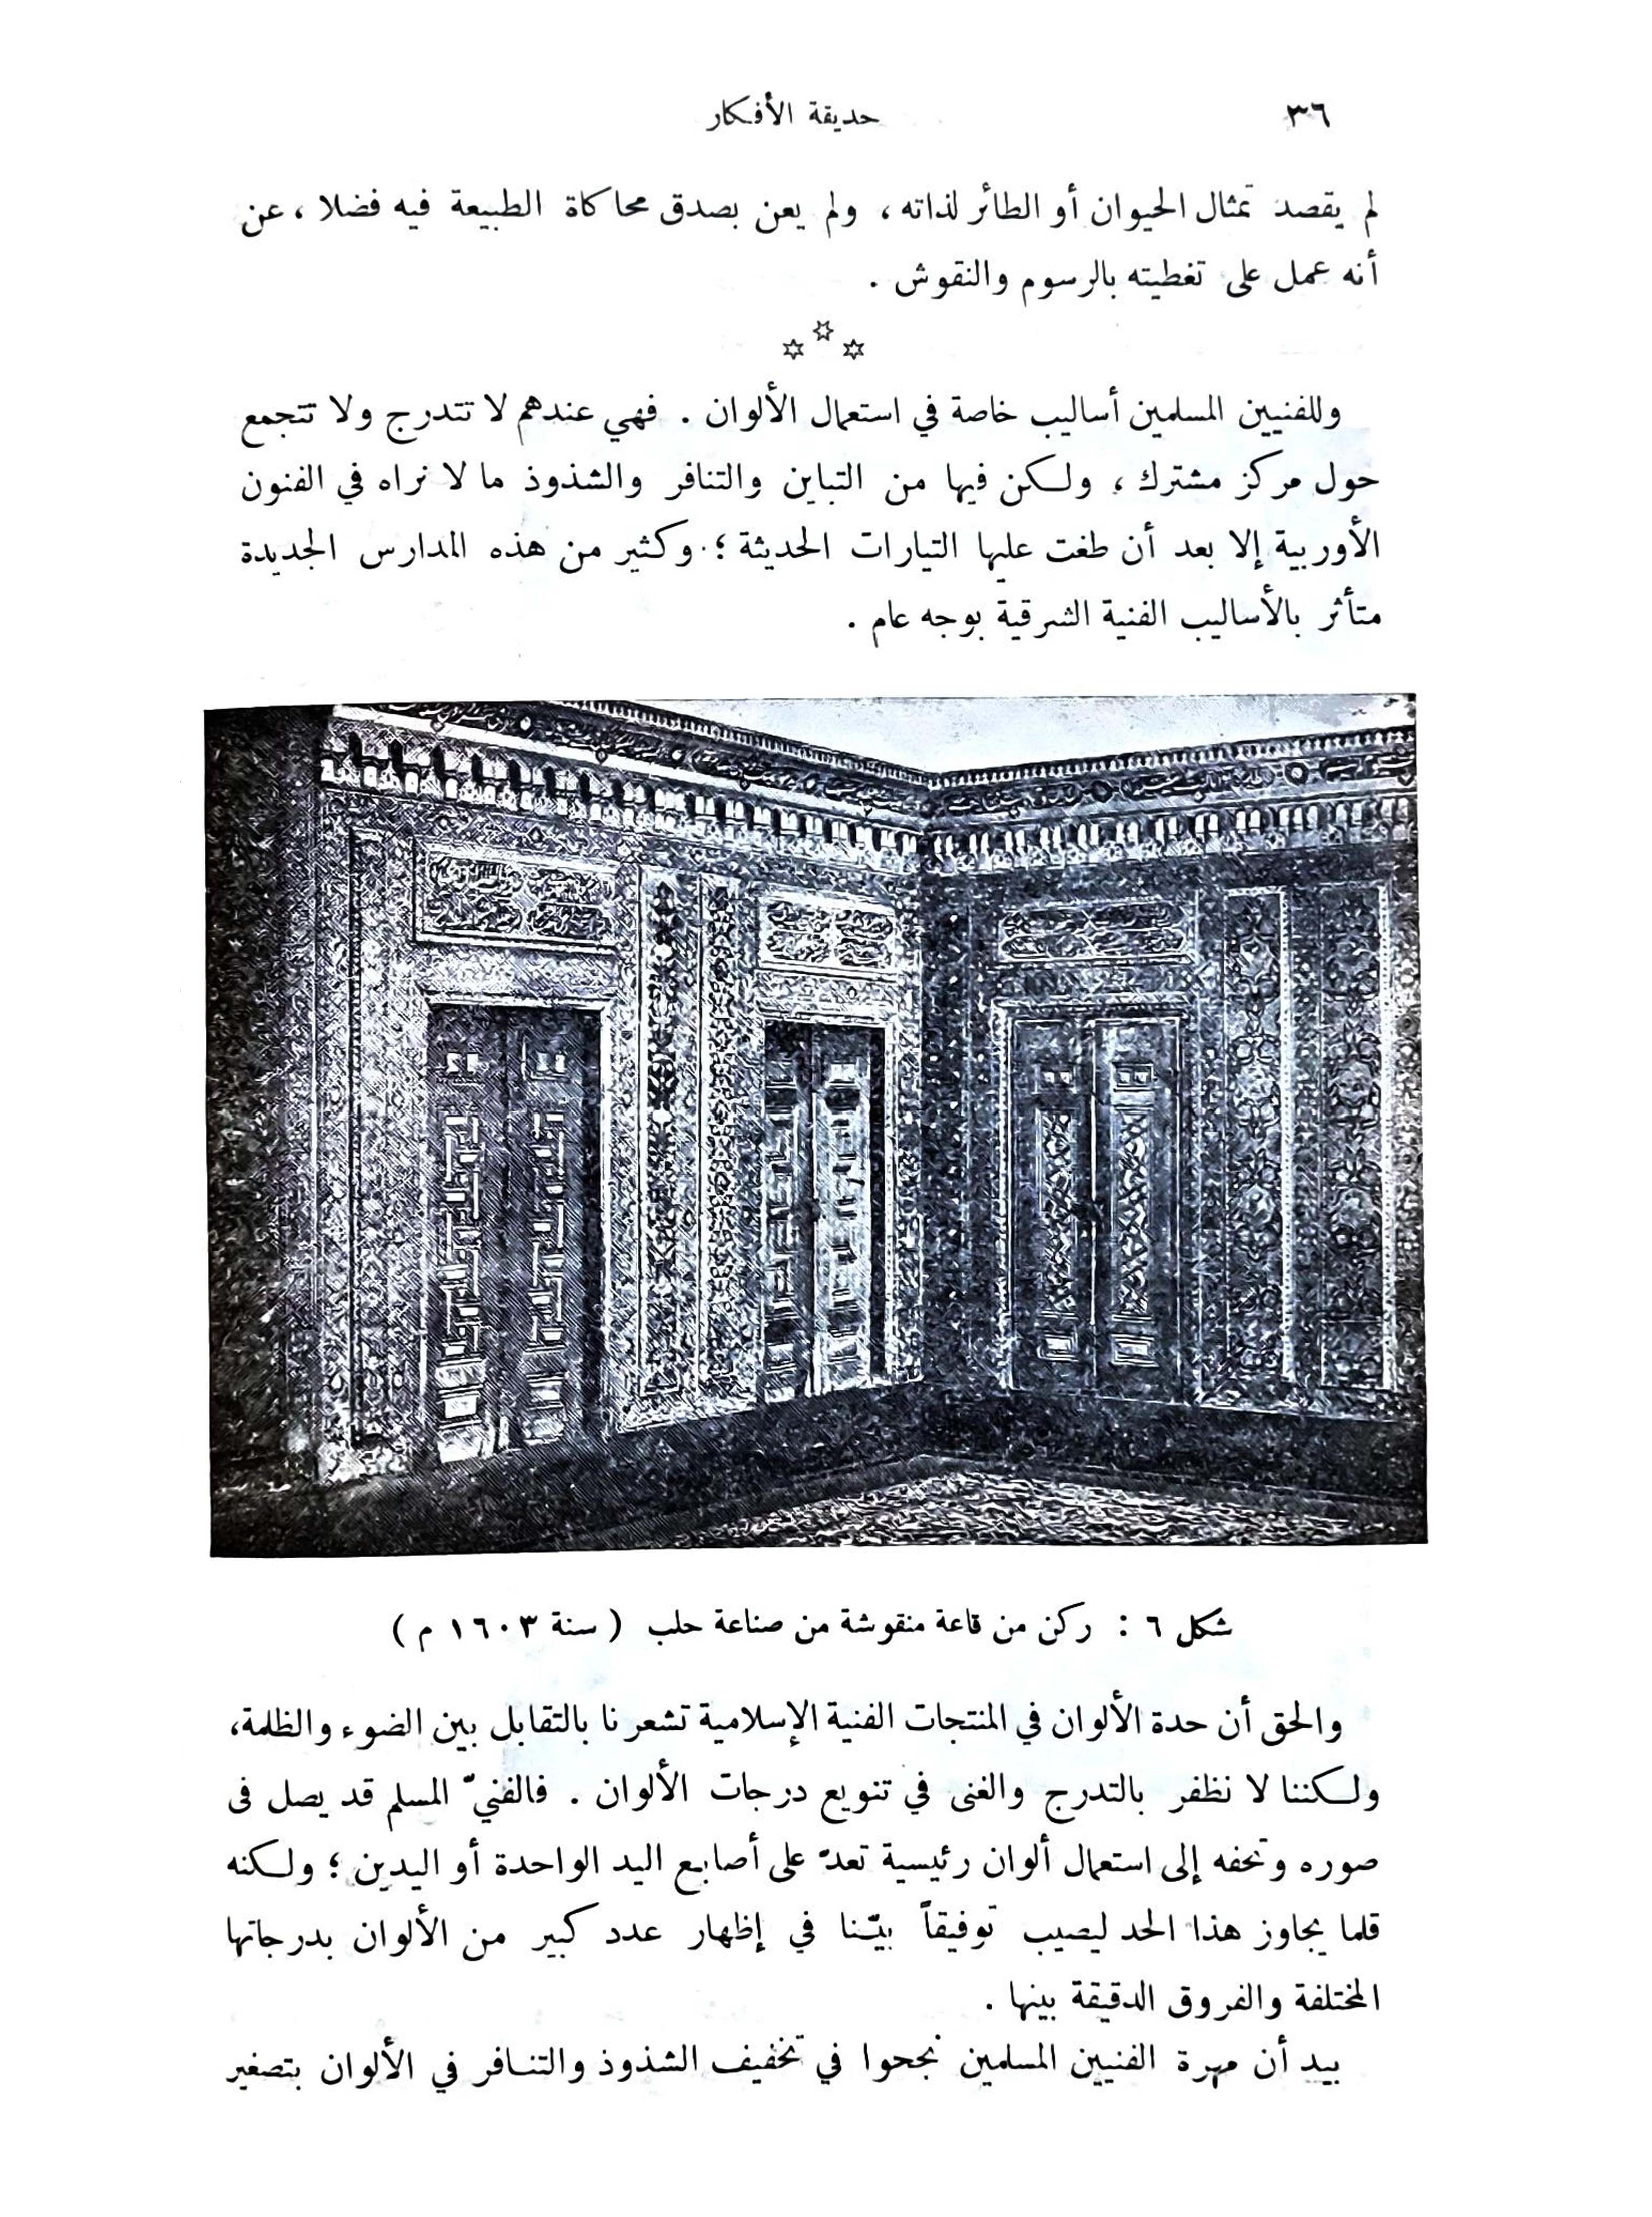 ٣٦
حديقة الأفكار
لم يقصد تمثال الحيوان أو الطائر لذاته، ولم يعن بصدق محاكاة الطبيعة فيه فضلا، عن
أنه عمل على تغطيته بالرسوم والنقوش .
وللفنيين المسلمين أساليب خاصة في استعمال الألوان . فهي عندهم لا تتدرج ولا تتجمع
حول مركز مشترك، ولكن فيها من التباين والتنافر والشذوذ ما لا نراه في الفنون
الأوربية إلا بعد أن طغت عليها التيارات الحديثة ؛ وكثير من هذه المدارس الجديدة
متأثر بالأساليب الفنية الشرقية بوجه عام .
شكل ٦ : ركن من قاعة منقوشة من صناعة حلب ( سنة ١٦٠٣ م )
والحق أن حدة الألوان في المنتجات الفنية الإسلامية تشعرنا بالتقابل بين الضوء والظلمة،
ولكننا لا نظفر بالتدرج والغنى في تنويع درجات الألوان . فالفنيّ المسلم قد يصل فى
صوره وتحفه إلى استعمال ألوان رئيسية تعدّ على أصابع اليد الواحدة أو اليدين ؛ ولكنه
قلما يجاوز هذا الحد ليصيب توفيقاً بيّنا في إظهار عدد كبير من الألوان بدرجاتها
المختلفة والفروق الدقيقة بينها .
بيد أن مهرة الفنيين المسلمين نجحوا في تخفيف الشذوذ والتنافر في الألوان بتصغير